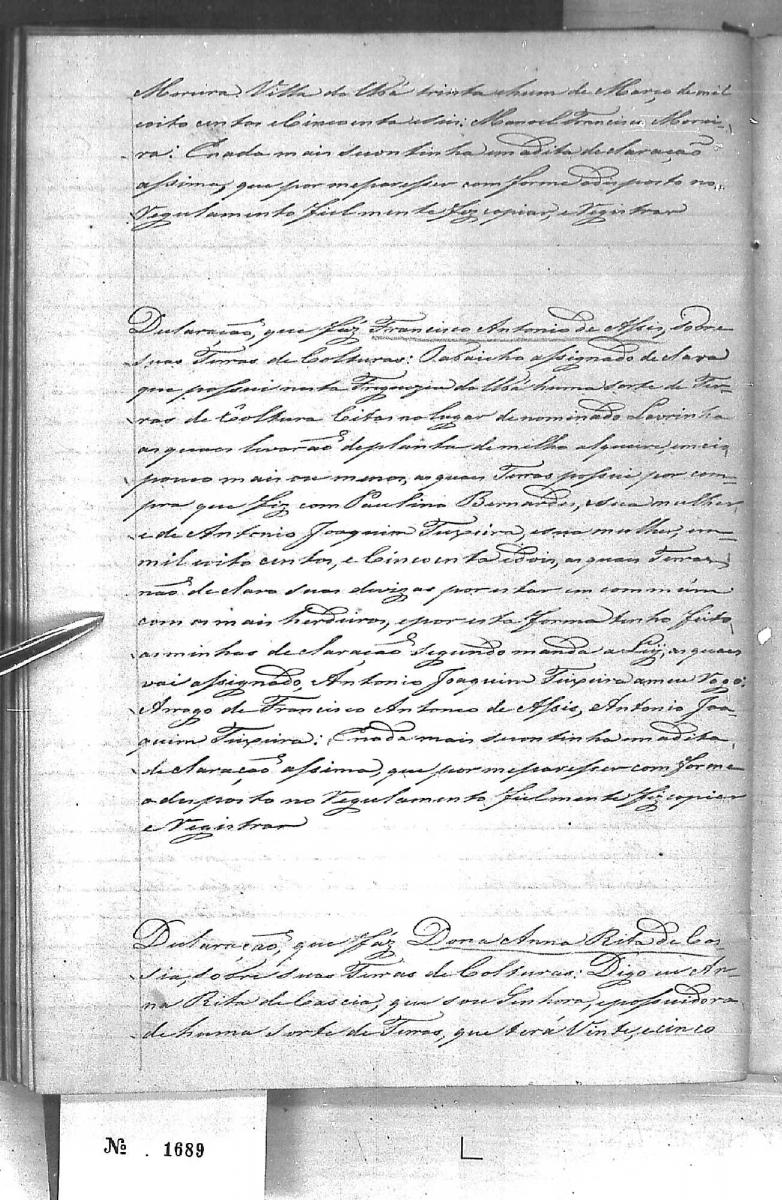 Moreira. Villa do Ubá trinta ehum de Março de mil
oito centos e Cincoenta eseis: Manoel Francisco Morei-
ra: Enada mais secontinha emadita declaração
assima, que por meparesser com forme odisposto no
Regulamento fielmente fiz copiar, e Registrar
Declaração, que fáz Francisco Antonio de Assis, sobre
suas Terras de Colturas: O abaicho assignado declara
que possui nesta Freguezia do Ubá huma sorte de Ter-
ras de Coltura Citas no lugar denominado Lavrinha
as quaes levarão deplanta de milho alqueire, emeio
pouco mais ou menos, as quais Terras possui por com-
pra que fiz com Paulino Bernardes, esua mulher
e de Antonio Joaquim Teixeira, esua mulher, em
mil oito centos, e Cincoenta edois, as quais Terras
não declara suas divizas por estar em commúm
com os mais herdeiros, epor esta forma tenho feito
as minhas declaracão segundo manda a Ley, as quaes
vai assignado, Antonio Joaquim Teixeira ameu Rogo:
Arogo de Francisco Antonco de Assis, Antonio Joa-
quim Teixeira: Enada mais secontinha emadita
declaração assima, que por meparesser com forme
odesposto no Regulamento fielmente fiz copiar
e Registrar
Declaração, que fáz Dona Anna Rita de Cas
sia, sobre suas Terras de Colturas: Digo eu An-
na Rita de Cascia, que sou Senhora, epossuidora
de huma sorte de Terras, que terá Vinte, ecinco
Nº . 1689